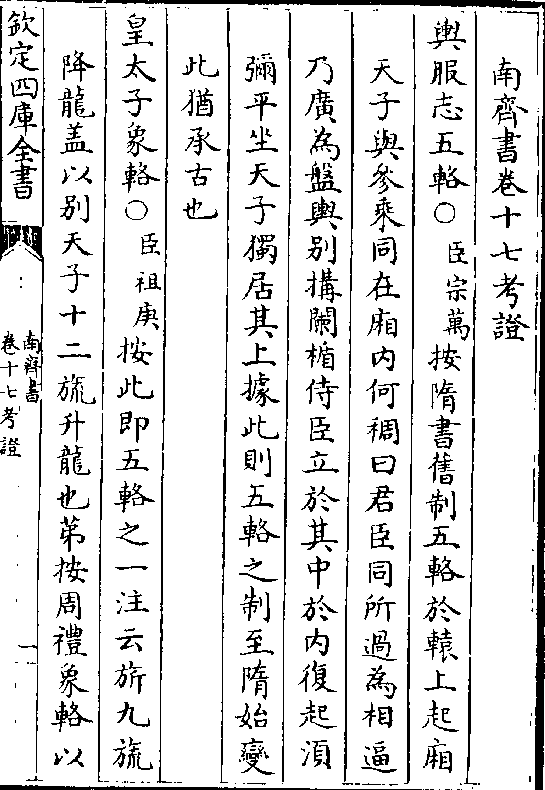 南齊書卷十七考證
輿服志五輅○臣宗萬按隋書舊制五輅於轅上起廂
天子與參乘同在廂内何稠曰君臣同所過為相逼
乃廣為盤輿别搆闌楯侍臣立於其中於内復起湏
彌平坐天子獨居其上據此則五輅之制至隋始變
此猶承古也
皇太子象輅○臣祖庚按此即五輅之一注云旂九旒
降龍盖以别天子十二旒升龍也苐按周禮象輅以
欽定四庫全書
南齊書
卷十七考證
一